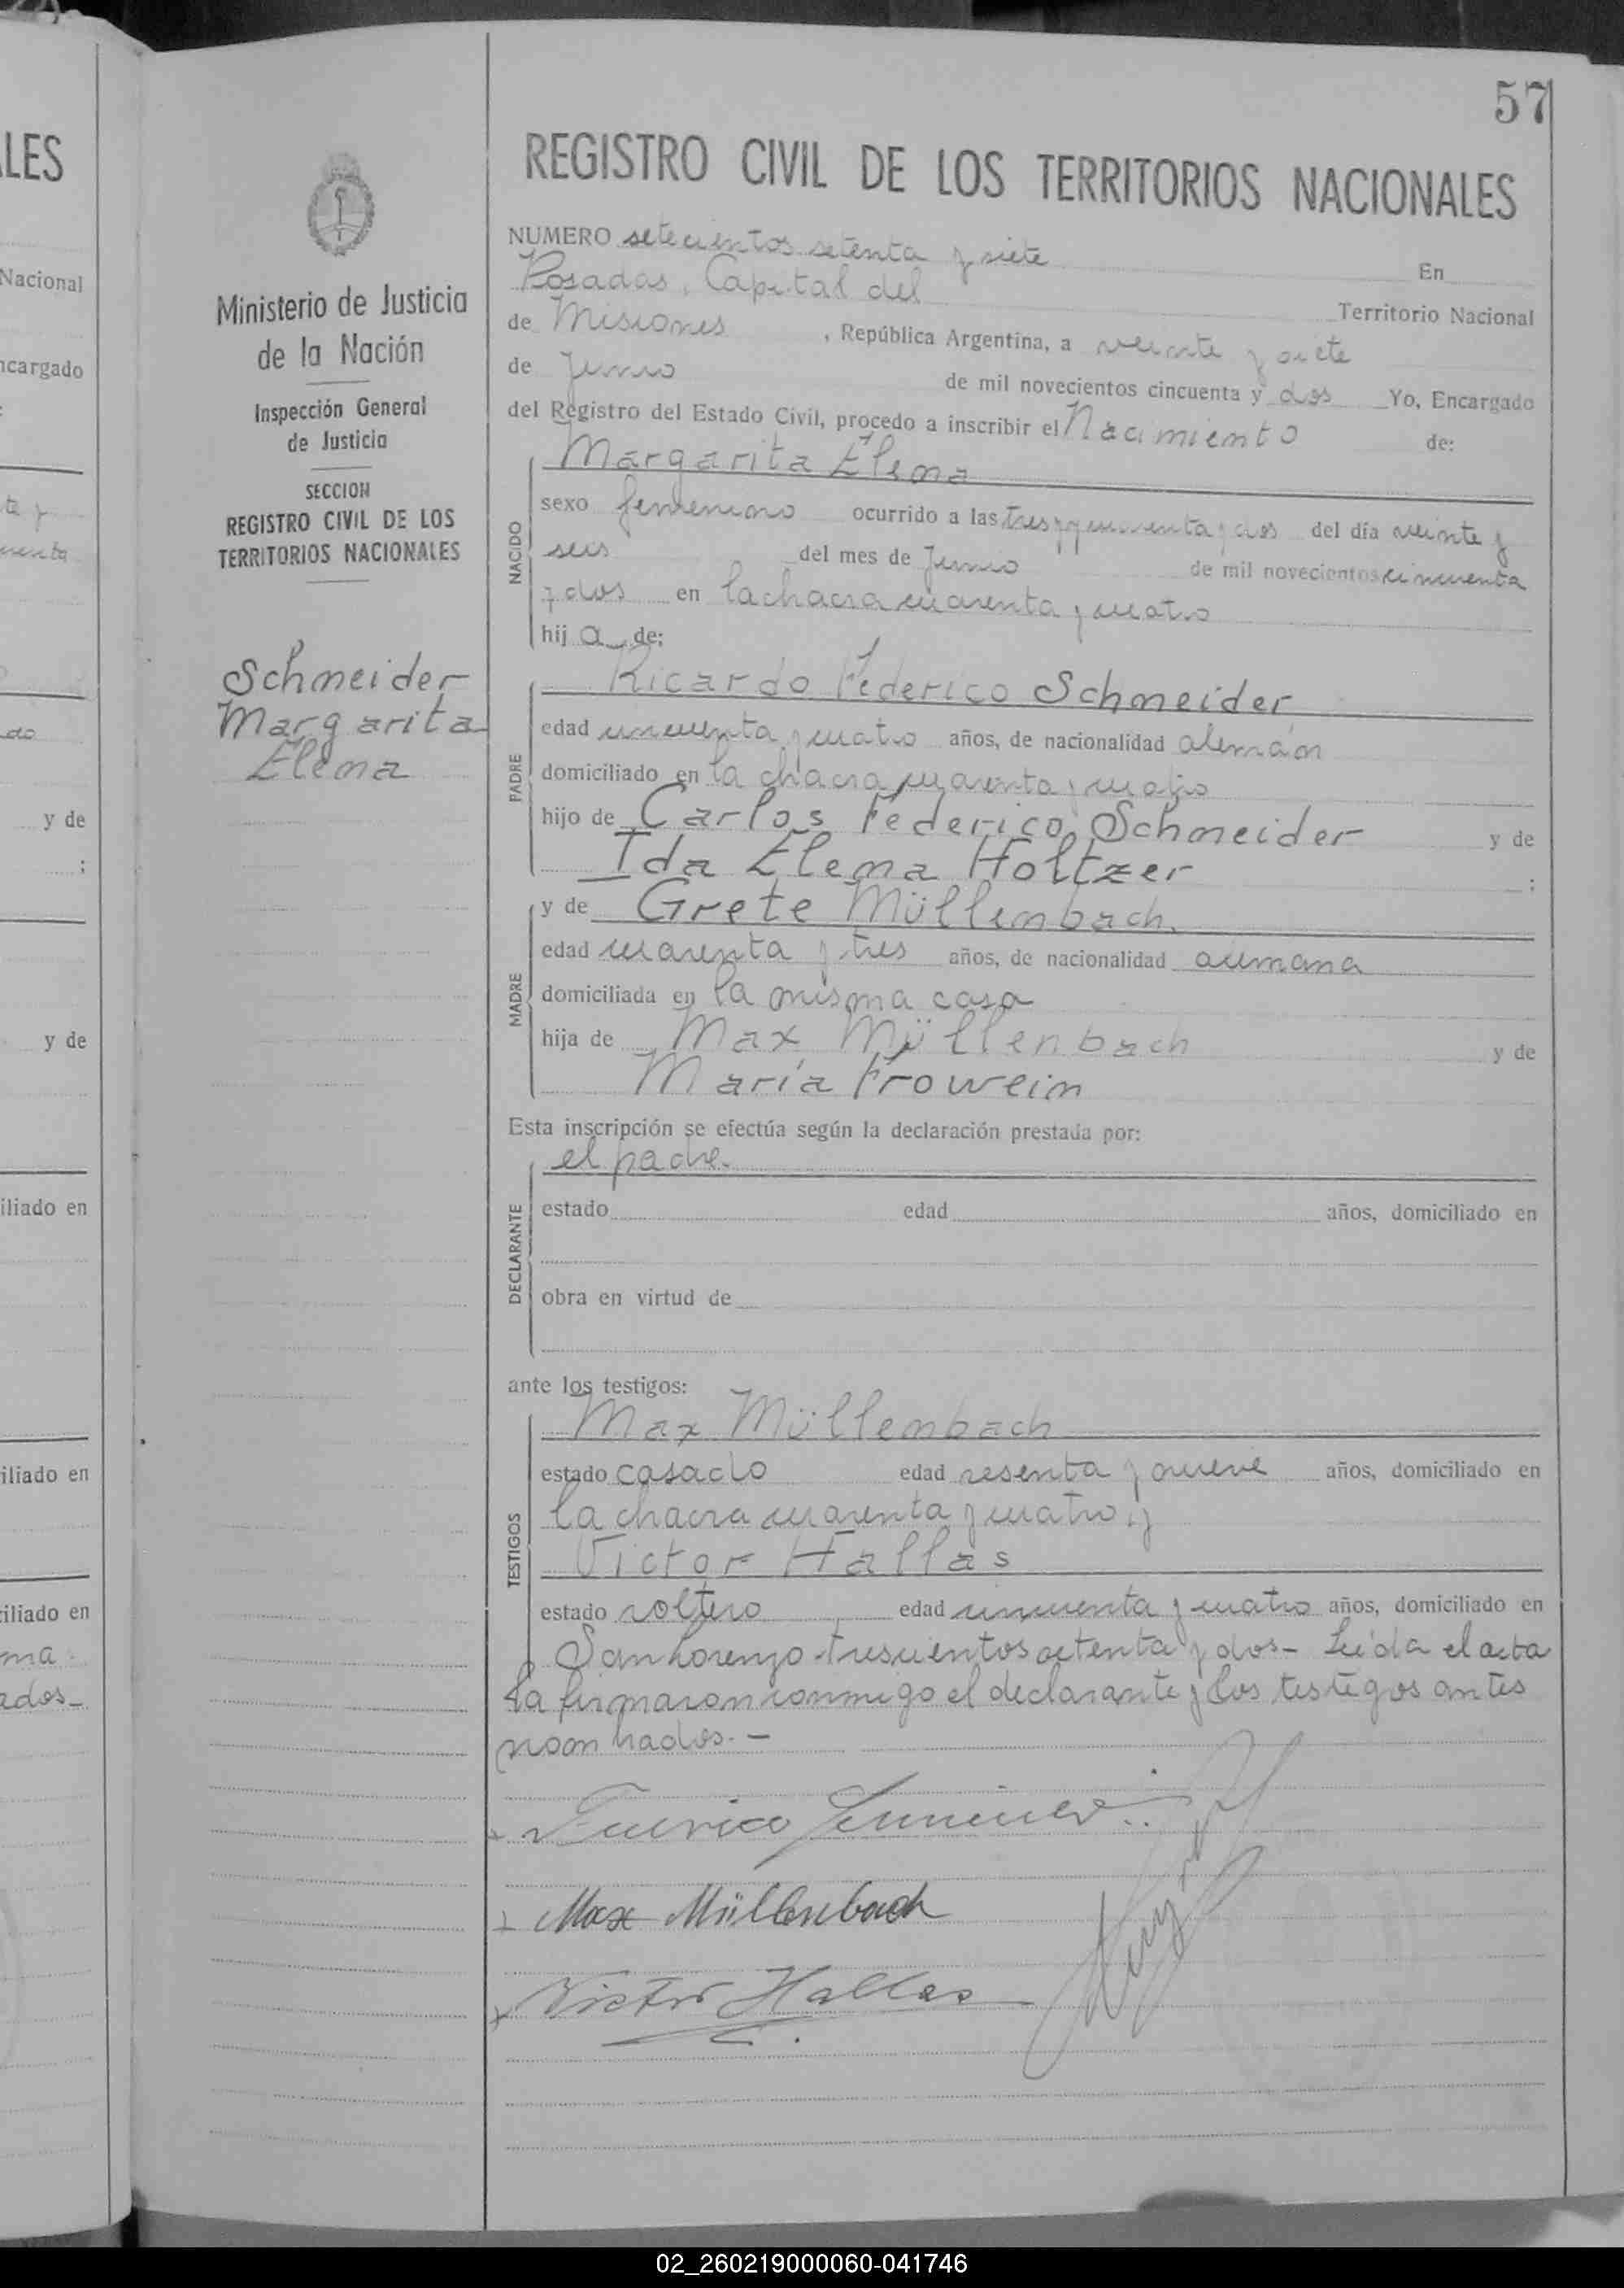 57
REGISTRO CIVIL DE LOS TERRITORIOS NACIONALES
NUMERO setecientos setenta y siete En
Posadas, Capital del Territorio Nacional
de Misiones , República Argentina, a veinte y siete
de Junio de mil novecientos cincuenta y dos Yo, Encargado
del Registro del Estado Civil, procedo a inscribir el Nacimiento de:
Margarita Elena
NACIDO
sexo femenino ocurrido a las tres y cincuenta y dos del día veinte y
seis del mes de Junio de mil novecientos cincuenta
y dos en la chacra cuarenta y cuatro
hij a de:
Ricardo Federico Schneider
PADRE
edad cincuenta y cuatro años, de nacionalidad alemán
domiciliado en la chacra cuarenta y cuatro
hijo de Carlos Federico Schneider y de
Ida Elena Holtzer ;
y de Grete Müllenbach.
MADRE
edad cuarenta y tres años, de nacionalidad alemana
domiciliada en la misma casa
hija de Max Müllenbach y de
María Frowein
Esta inscripción se efectúa según la declaración prestada por:
el padre.
DECLARANTE
estado edad años, domiciliado en
obra en virtud de
ante los testigos:
Max Müllenbach
TESTIGOS
estado casado edad sesenta y nueve años, domiciliado en
la chacra cuarenta y cuatro, y
Victor Hallas
estado soltero edad cincuenta y cuatro años, domiciliado en
San Lorenzo trescientos setenta y dos- Leída el acta
la firmaron conmigo el declarante y los testigos antes
nombrados.-
Max Müllenbach
Victor Hallas
Ministerio de Justicia
de la Nación
Inspección General
de Justicia
SECCION
REGISTRO CIVIL DE LOS
TERRITORIOS NACIONALES
Schneider
Margarita
Elena
LES
Nacional
ncargado
y de
;
y de
iliado en
iliado en
iliado en
02_260219000060-041746